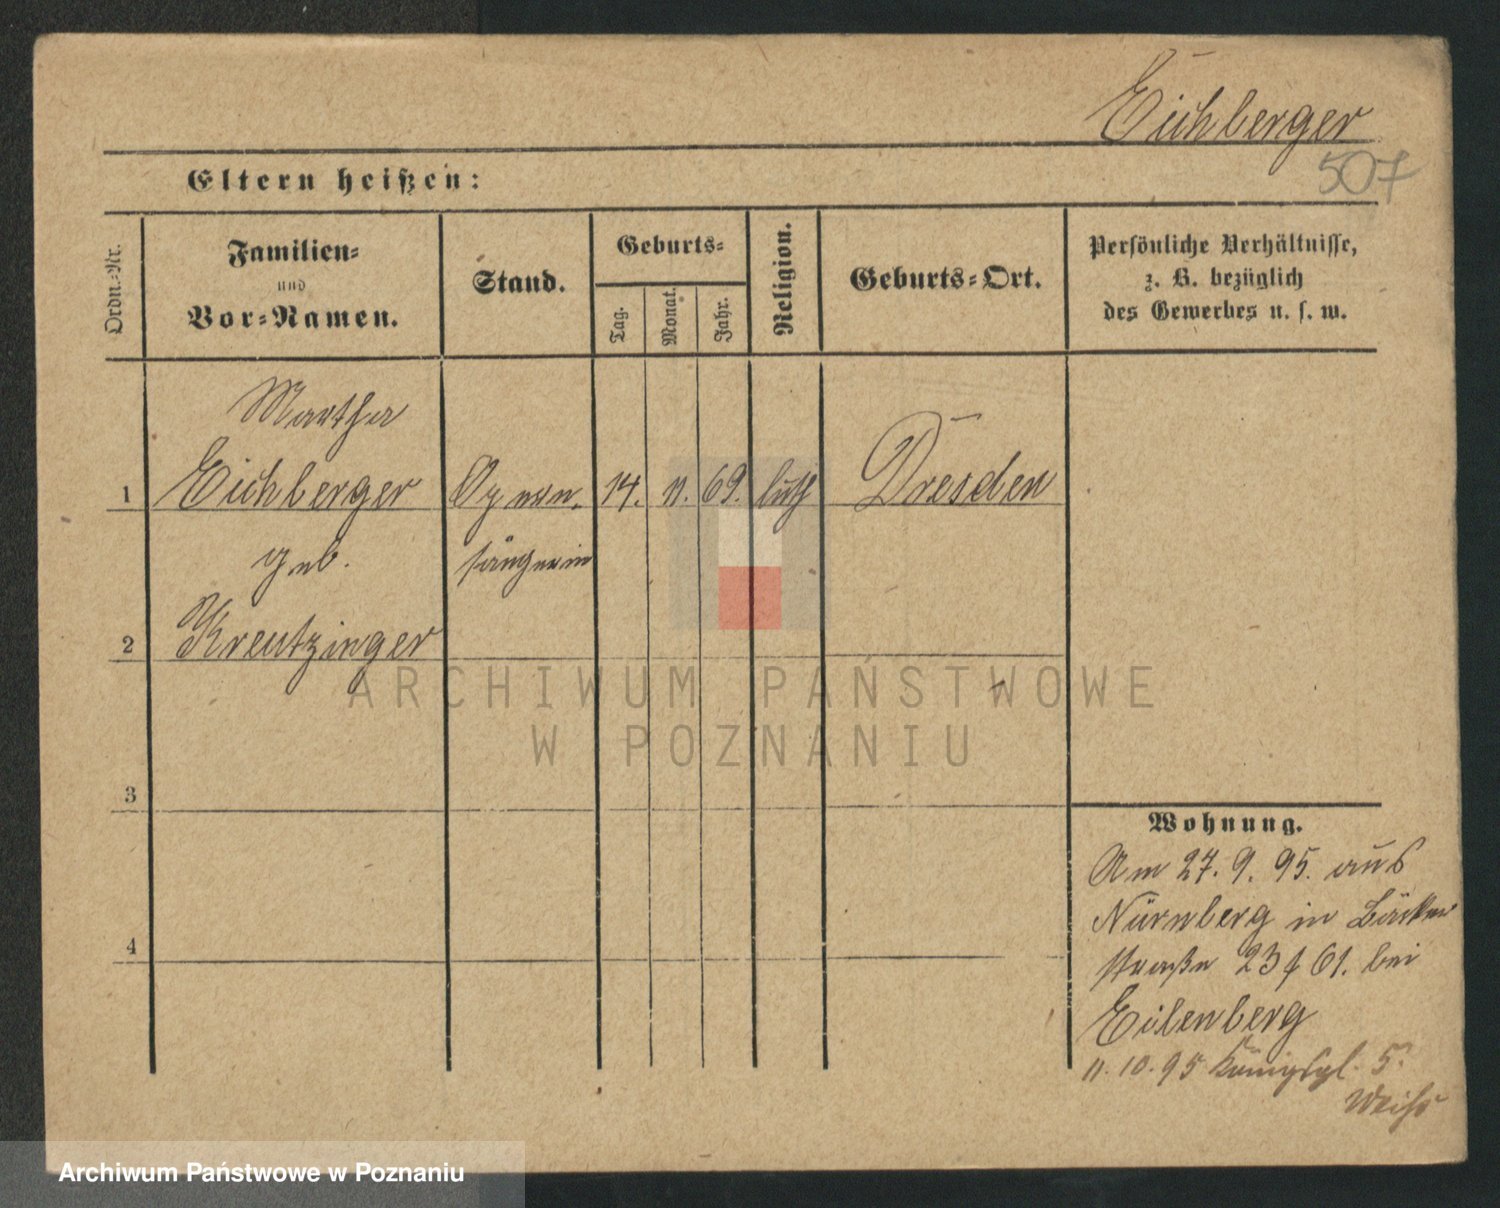 Eichberger
507
Eltern heißen:
Ordn.-Nr.
Familien-
und
Vor-Namen.
Stand.
Geburts-
Tag.
Monat.
Jahr.
Religion.
Geburts-Ort.
Persönliche Verhältnisse,
z. B. bezüglich
des Gewerbes u. s. w.
Martha
1 Eichberger Opern. 14. 11. 69. luth Dresden
geb. sängerin
2 Kreutzinger
ARCHIWUM PAŃSTWOWE
W POZNANIU
3
Wohnung.
Am 27. 9. 95. aus
Nürnberg in Bäcker
4
straße 23 f 61. bei
Eilenberg
11. 10. 95 Königspl. 5.
Weiss
Archiwum Państwowe w Poznaniu